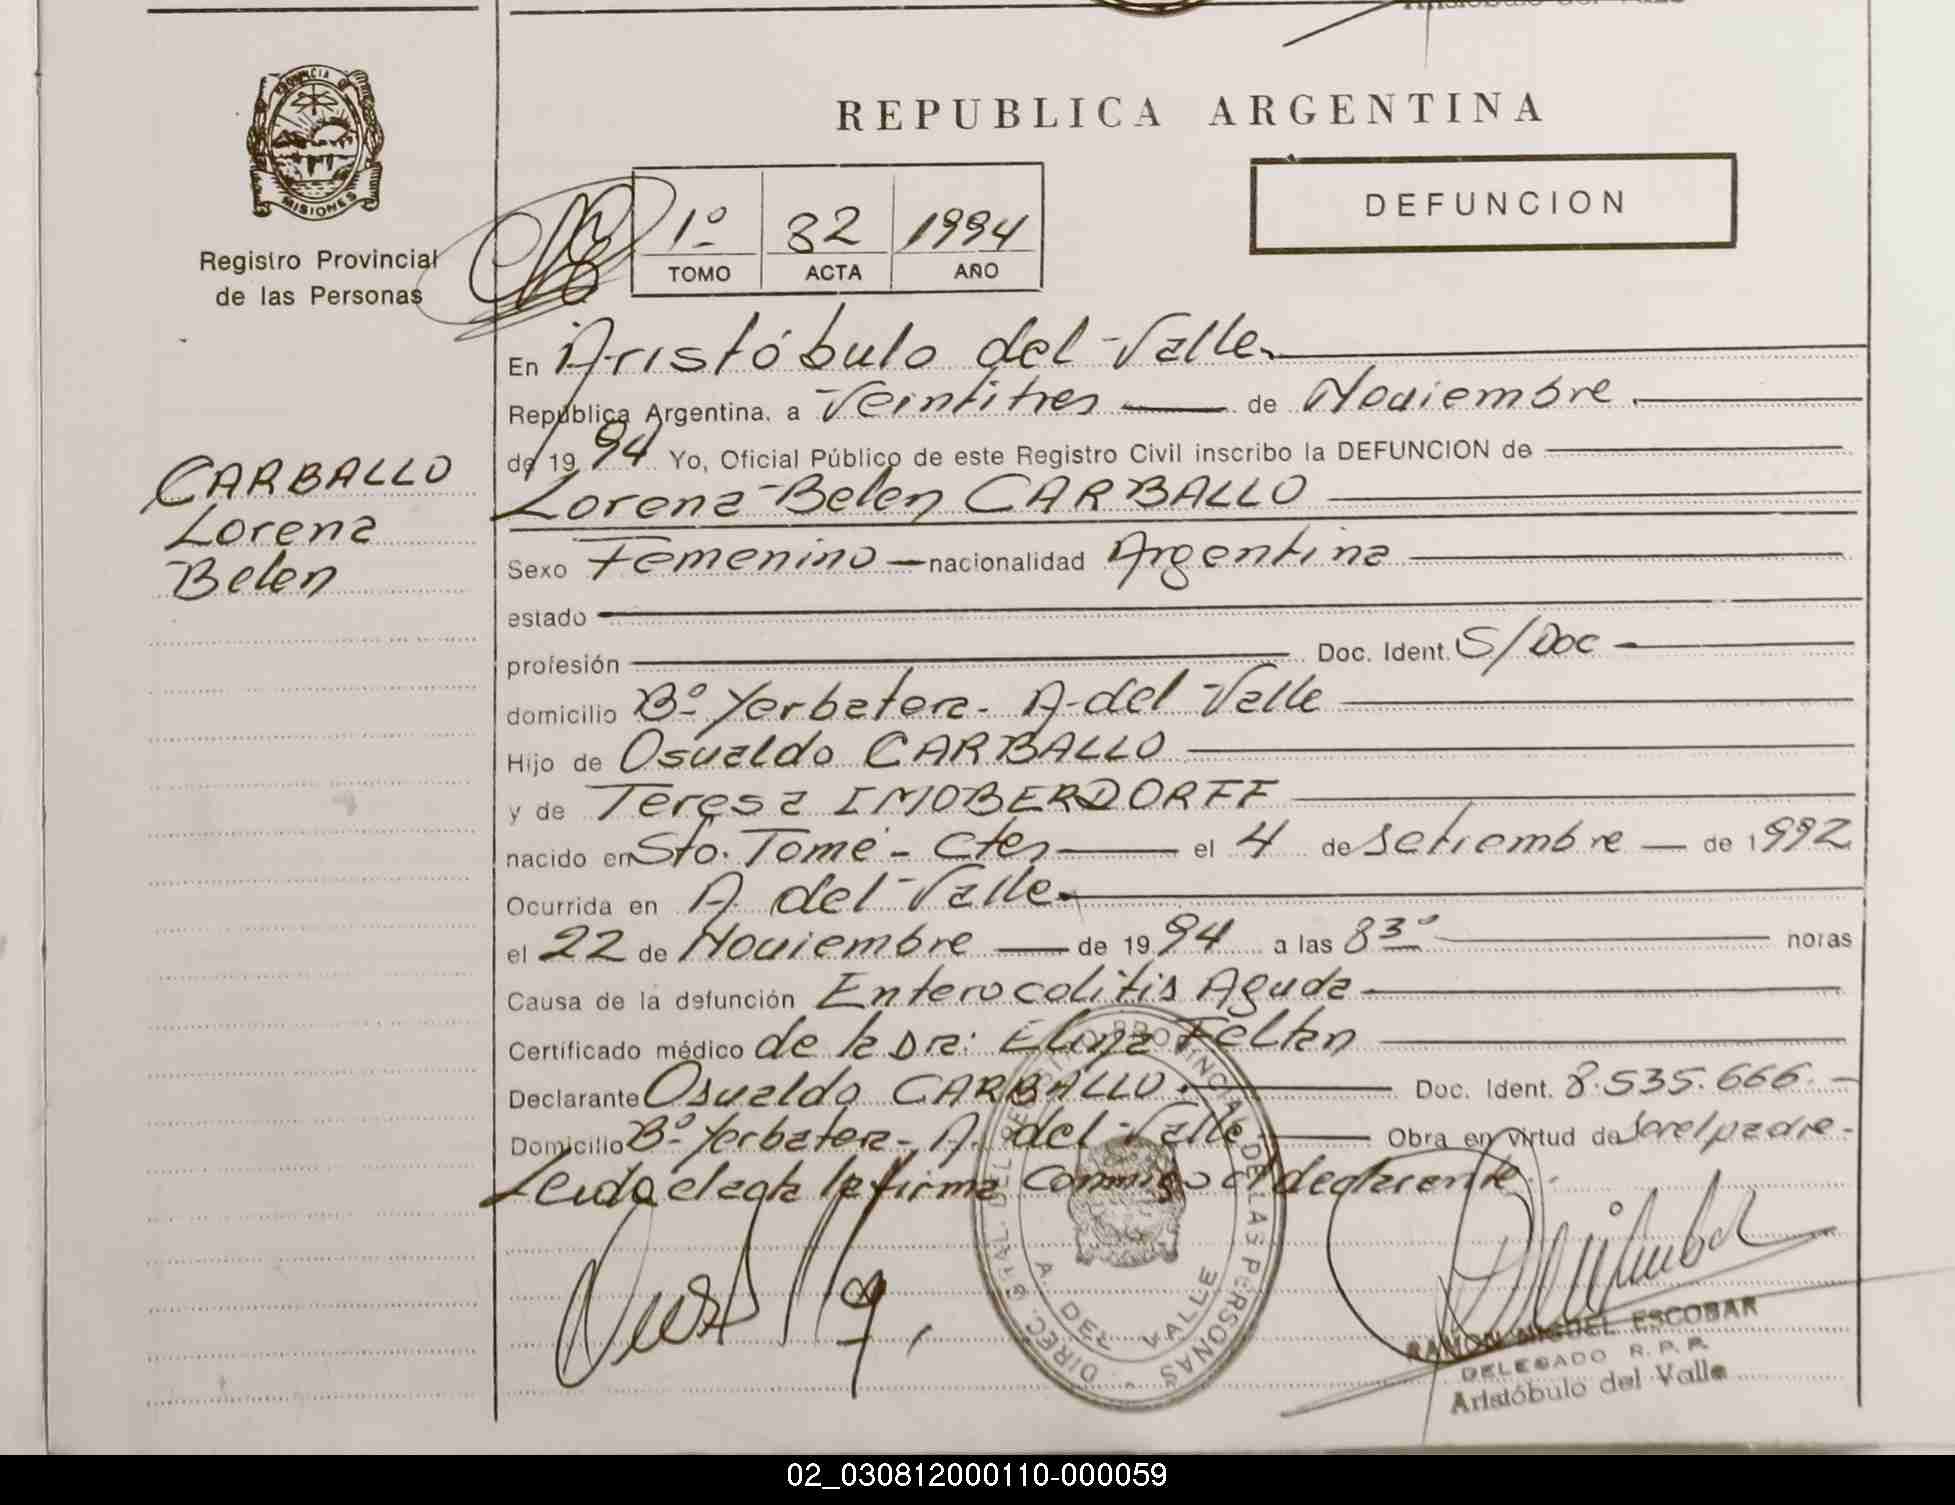 REPUBLICA ARGENTINA
PROVINCIA DE
MISIONES
Registro Provincial
de las Personas
DEFUNCION
1º 32 1994
TOMO ACTA AÑO
CARBALLO
Lorena
Belen
En Aristóbulo del Valle
República Argentina, a Veintitres de Noviembre
de 1994 Yo, Oficial Público de este Registro Civil inscribo la DEFUNCION de
Lorena Belen CARBALLO
Sexo Femenino nacionalidad Argentina
estado
profesión Doc. Ident. S/Doc
domicilio Bº Yerbatera - A. del Valle
Hijo de Osvaldo CARBALLO
y de Teresa IMOBERDORFF
nacido en Sto. Tomé - Ctes el 4 de Setiembre de 1992
Ocurrida en A. del Valle
el 22 de Noviembre de 1994 a las 8 30 horas
Causa de la defunción Enterocolitis Aguda
Certificado médico de la Dra. Elina Feltan
Declarante Osvaldo CARBALLO Doc. Ident. 8.535.666
Domicilio Bº Yerbatera - A. del Valle Obra en virtud de ser el padre
Leida el acta la firma conmigo el declarante
DIREC. GRAL. DEL REGISTRO PROVINCIAL DE LAS PERSONAS
A. DEL VALLE
RAMON MIGUEL ESCOBAR
DELEGADO R. P. P.
Aristóbulo del Valle
02_030812000110-000059